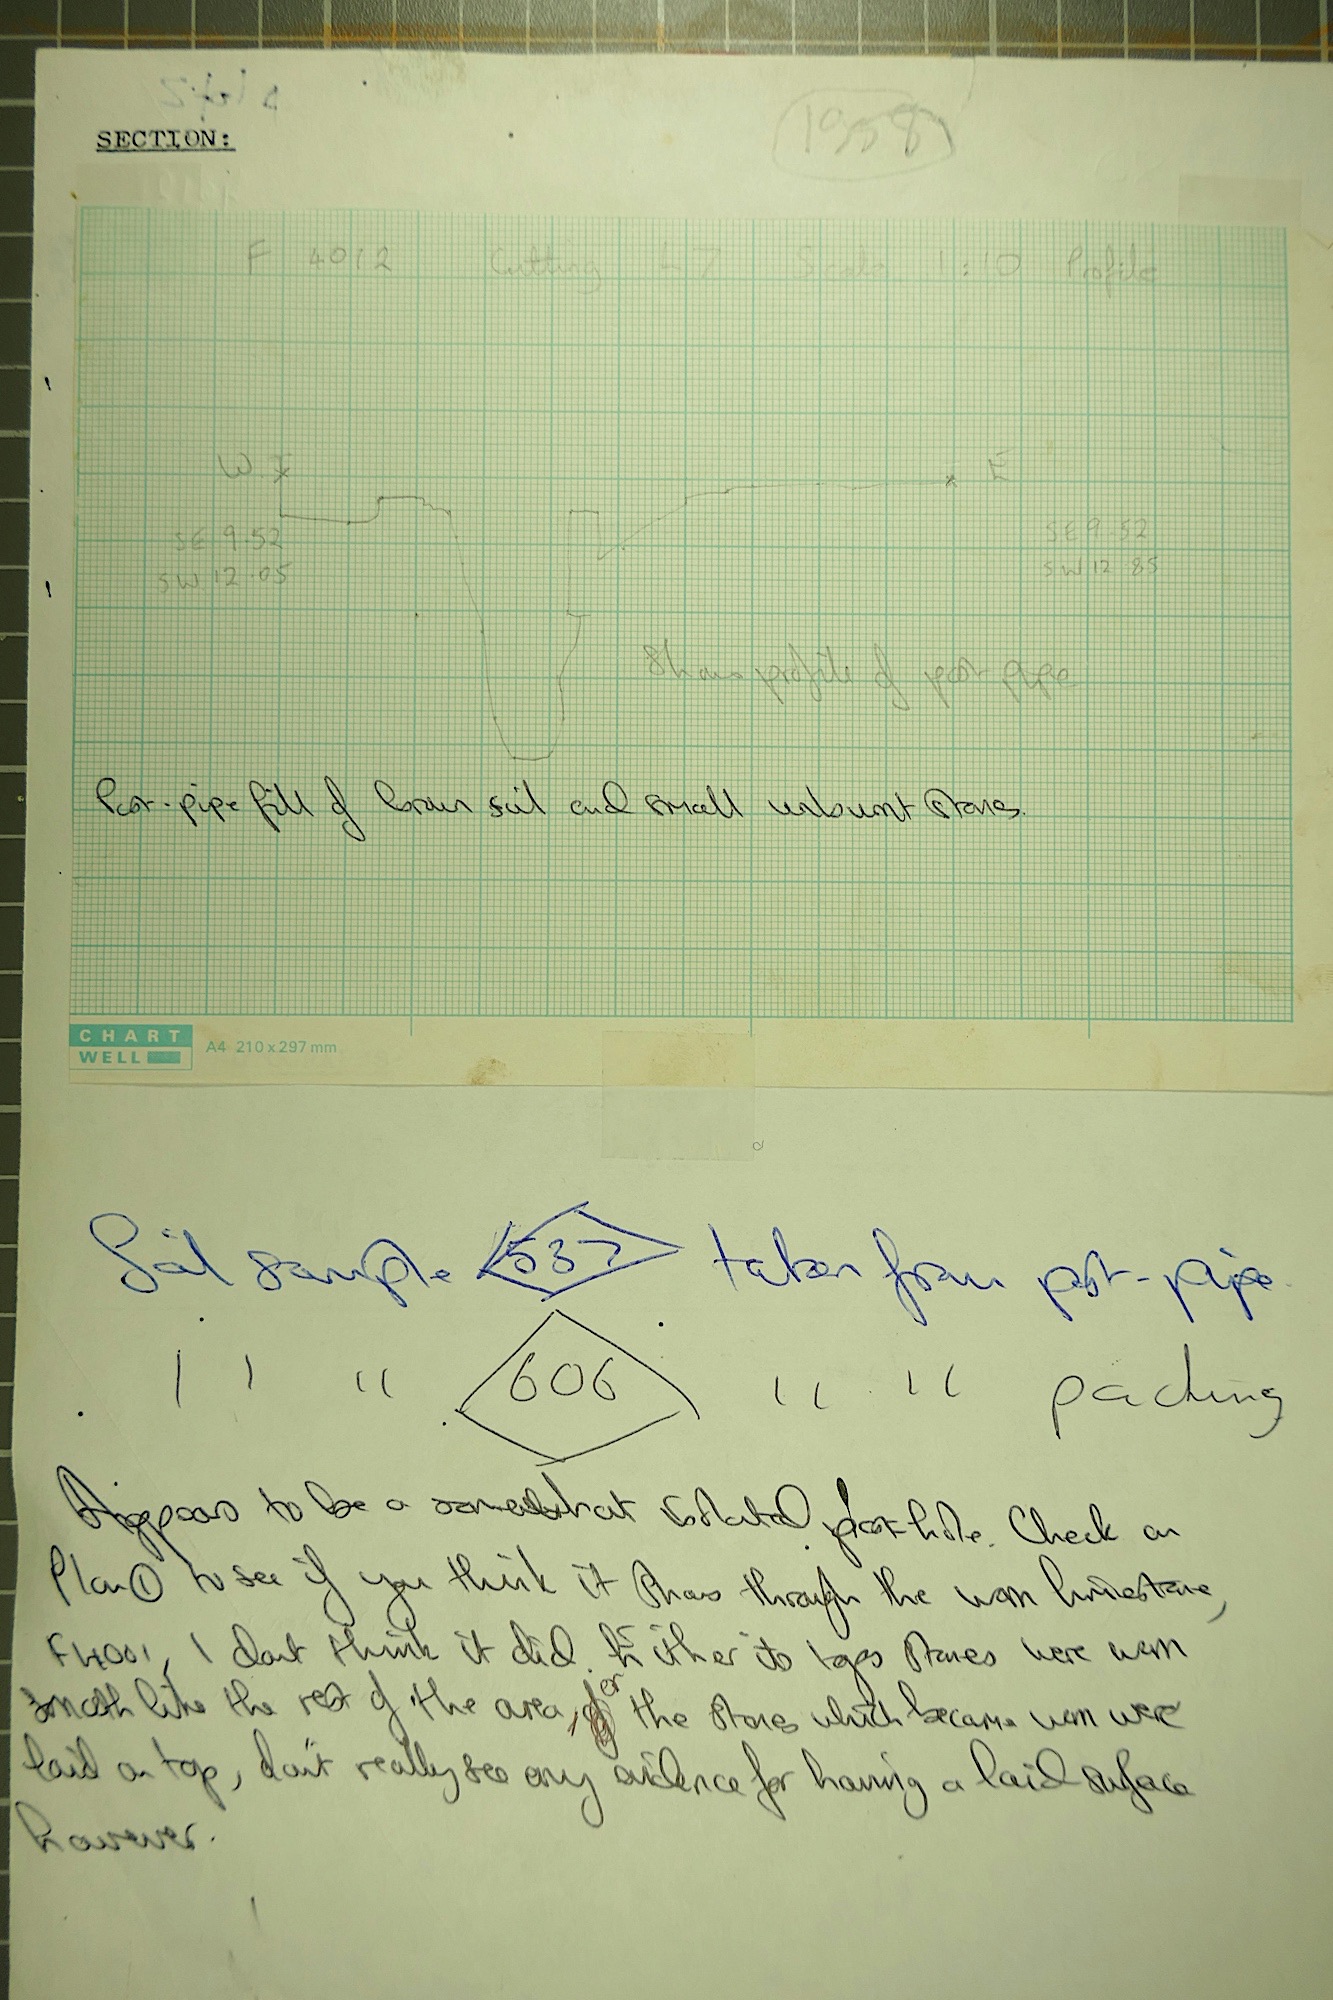 SECTION:
1958
F 4012 Cutting L7 Scale 1:10 Profile
W E
SE 9.52 SE 9.52
SW 12.05 SW 12 85
Shows profile of post-pipe
Post-pipe fill of brown soil and small unburnt stones.
CHART
WELL A4 210 x 297 mm
Soil sample 537 taken from post-pipe.
" " " 606 " " " " packing
Appears to be a somewhat isolated post-hole. Check on
Plan ① to see if you think it shows through the worn limestone,
F4001, I dont think it did. Either its top stones were worn
smooth like the rest of the area, or the stones which became worn were
laid on top, don't really see any evidence for having a laid surface
however.